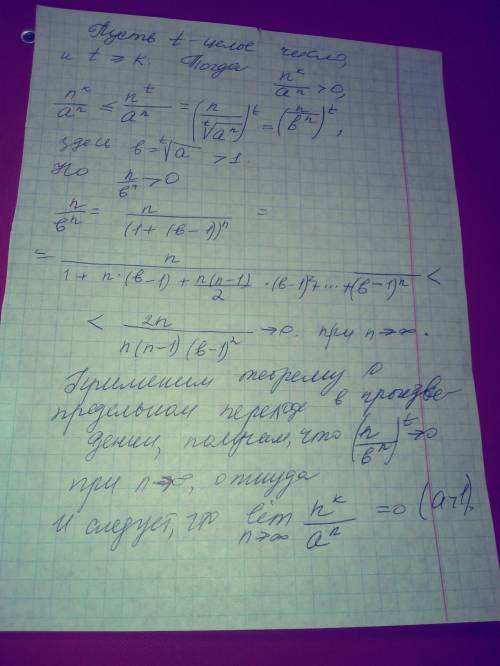 Пусть t - целое число,
и t ≥ k. Тогда n^k/a^n > 0,
n^k/a^n ≤ n^t/a^n = (n/ᵗ√(a^n))^t = (n/в^n)^t,
здесь в = ᵗ√a > 1.
Но n/в^n > 0
n/в^n = n/(1 + (в-1))^n =
= n/(1 + n·(в-1) + n(n-1)/2 ·(в-1)² + ... + (в-1)^n) <
< 2n/(n(n-1)(в-1)²) → 0 при n→∞.
Применим теорему о
предельном переходе в произве-
дении, получаем, что (n/в^n)^t → 0
при n→∞, откуда
и следует, что lim n→∞ n^k/a^n = 0 (a>1).